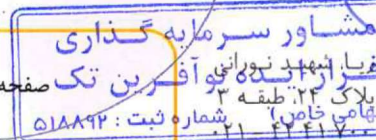 مشاور سرمایه گذاری
فراز ایده نوآفرین تک صفحه
شهید نورانی
پلاک ۲۴، طبقه ۳
شماره ثبت : ۵۱۸۸۹۲